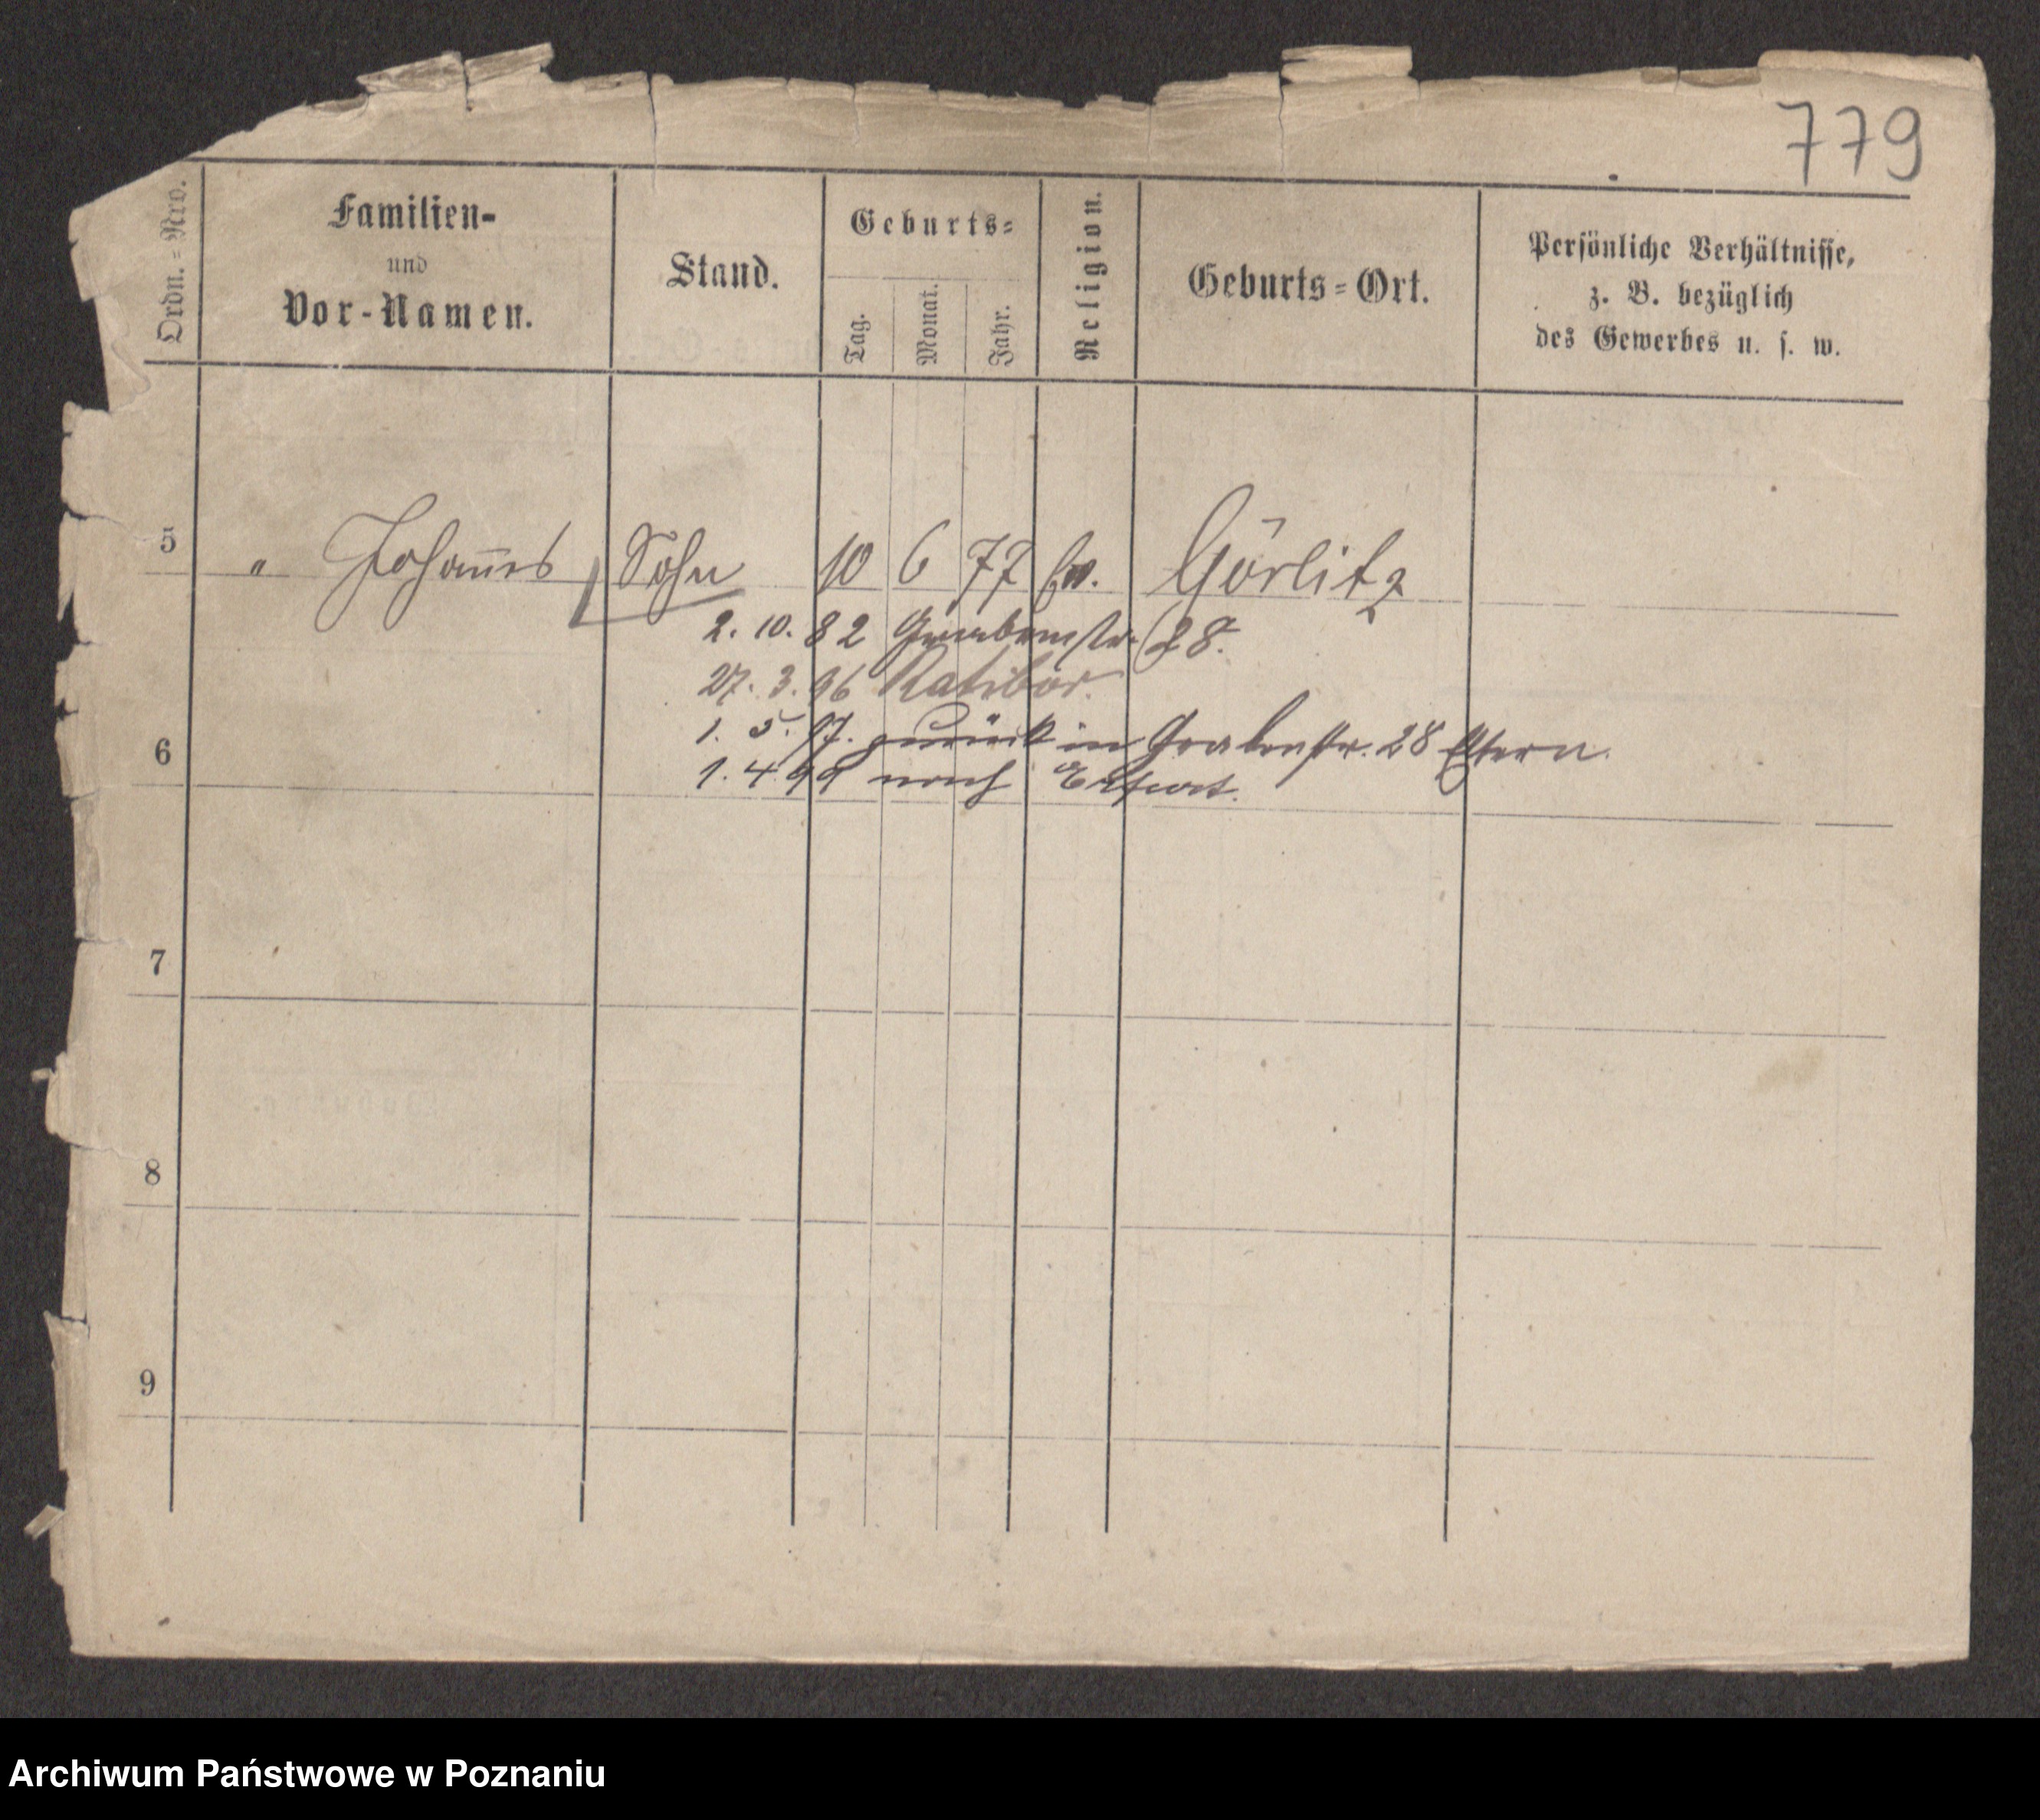 779
Ordn.=Nro.
Familien-
und
Vor-Namen.
Stand.
Geburts=
Tag.
Monat.
Jahr.
Religion.
Geburts=Ort.
Persönliche Verhältnisse,
z. B. bezüglich
des Gewerbes u. s. w.
5 " Johannes Sohn 10 6 77 Ev. Görlitz
2. 10. 82 Grabenstr. 28.
27. 3. 96 Ratibor.
1. 5. 97. zurück in Grabenstr. 28 Eltern.
6
1. 4 99 nach Erfurt.
7
8
9
Archiwum Państwowe w Poznaniu